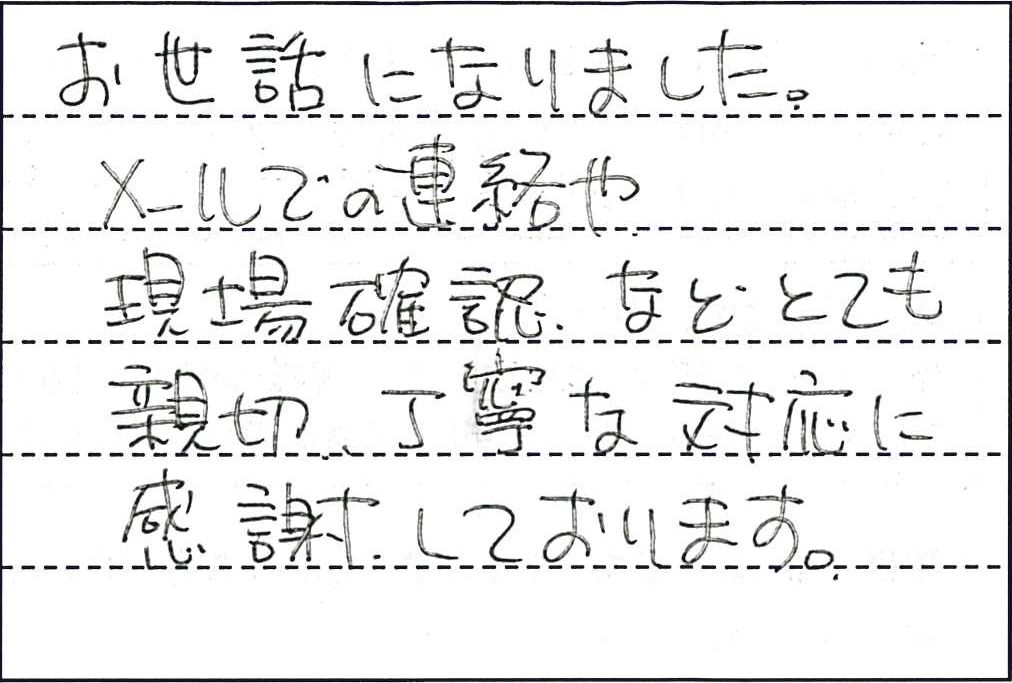 お世話になりました。
メールでの連絡や
現場確認、などとても
親切、丁寧な対応に
感謝しております。